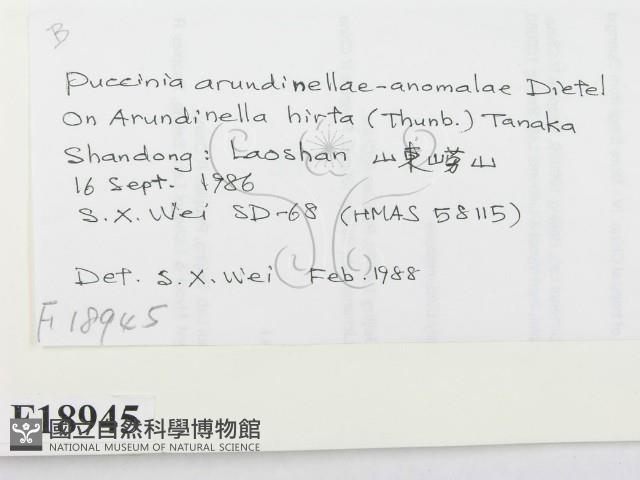 B
Puccinia arundinellae-anomalae Dietel
On Arundinella hirta (Thunb.) Tanaka
Shandong: Laoshan 山東嶗山
16 Sept. 1986
S.X. Wei SD-68 (HMAS 58115)
Det. S.X. Wei Feb. 1988
F18945
F18945
國立自然科學博物館
NATIONAL MUSEUM OF NATURAL SCIENCE